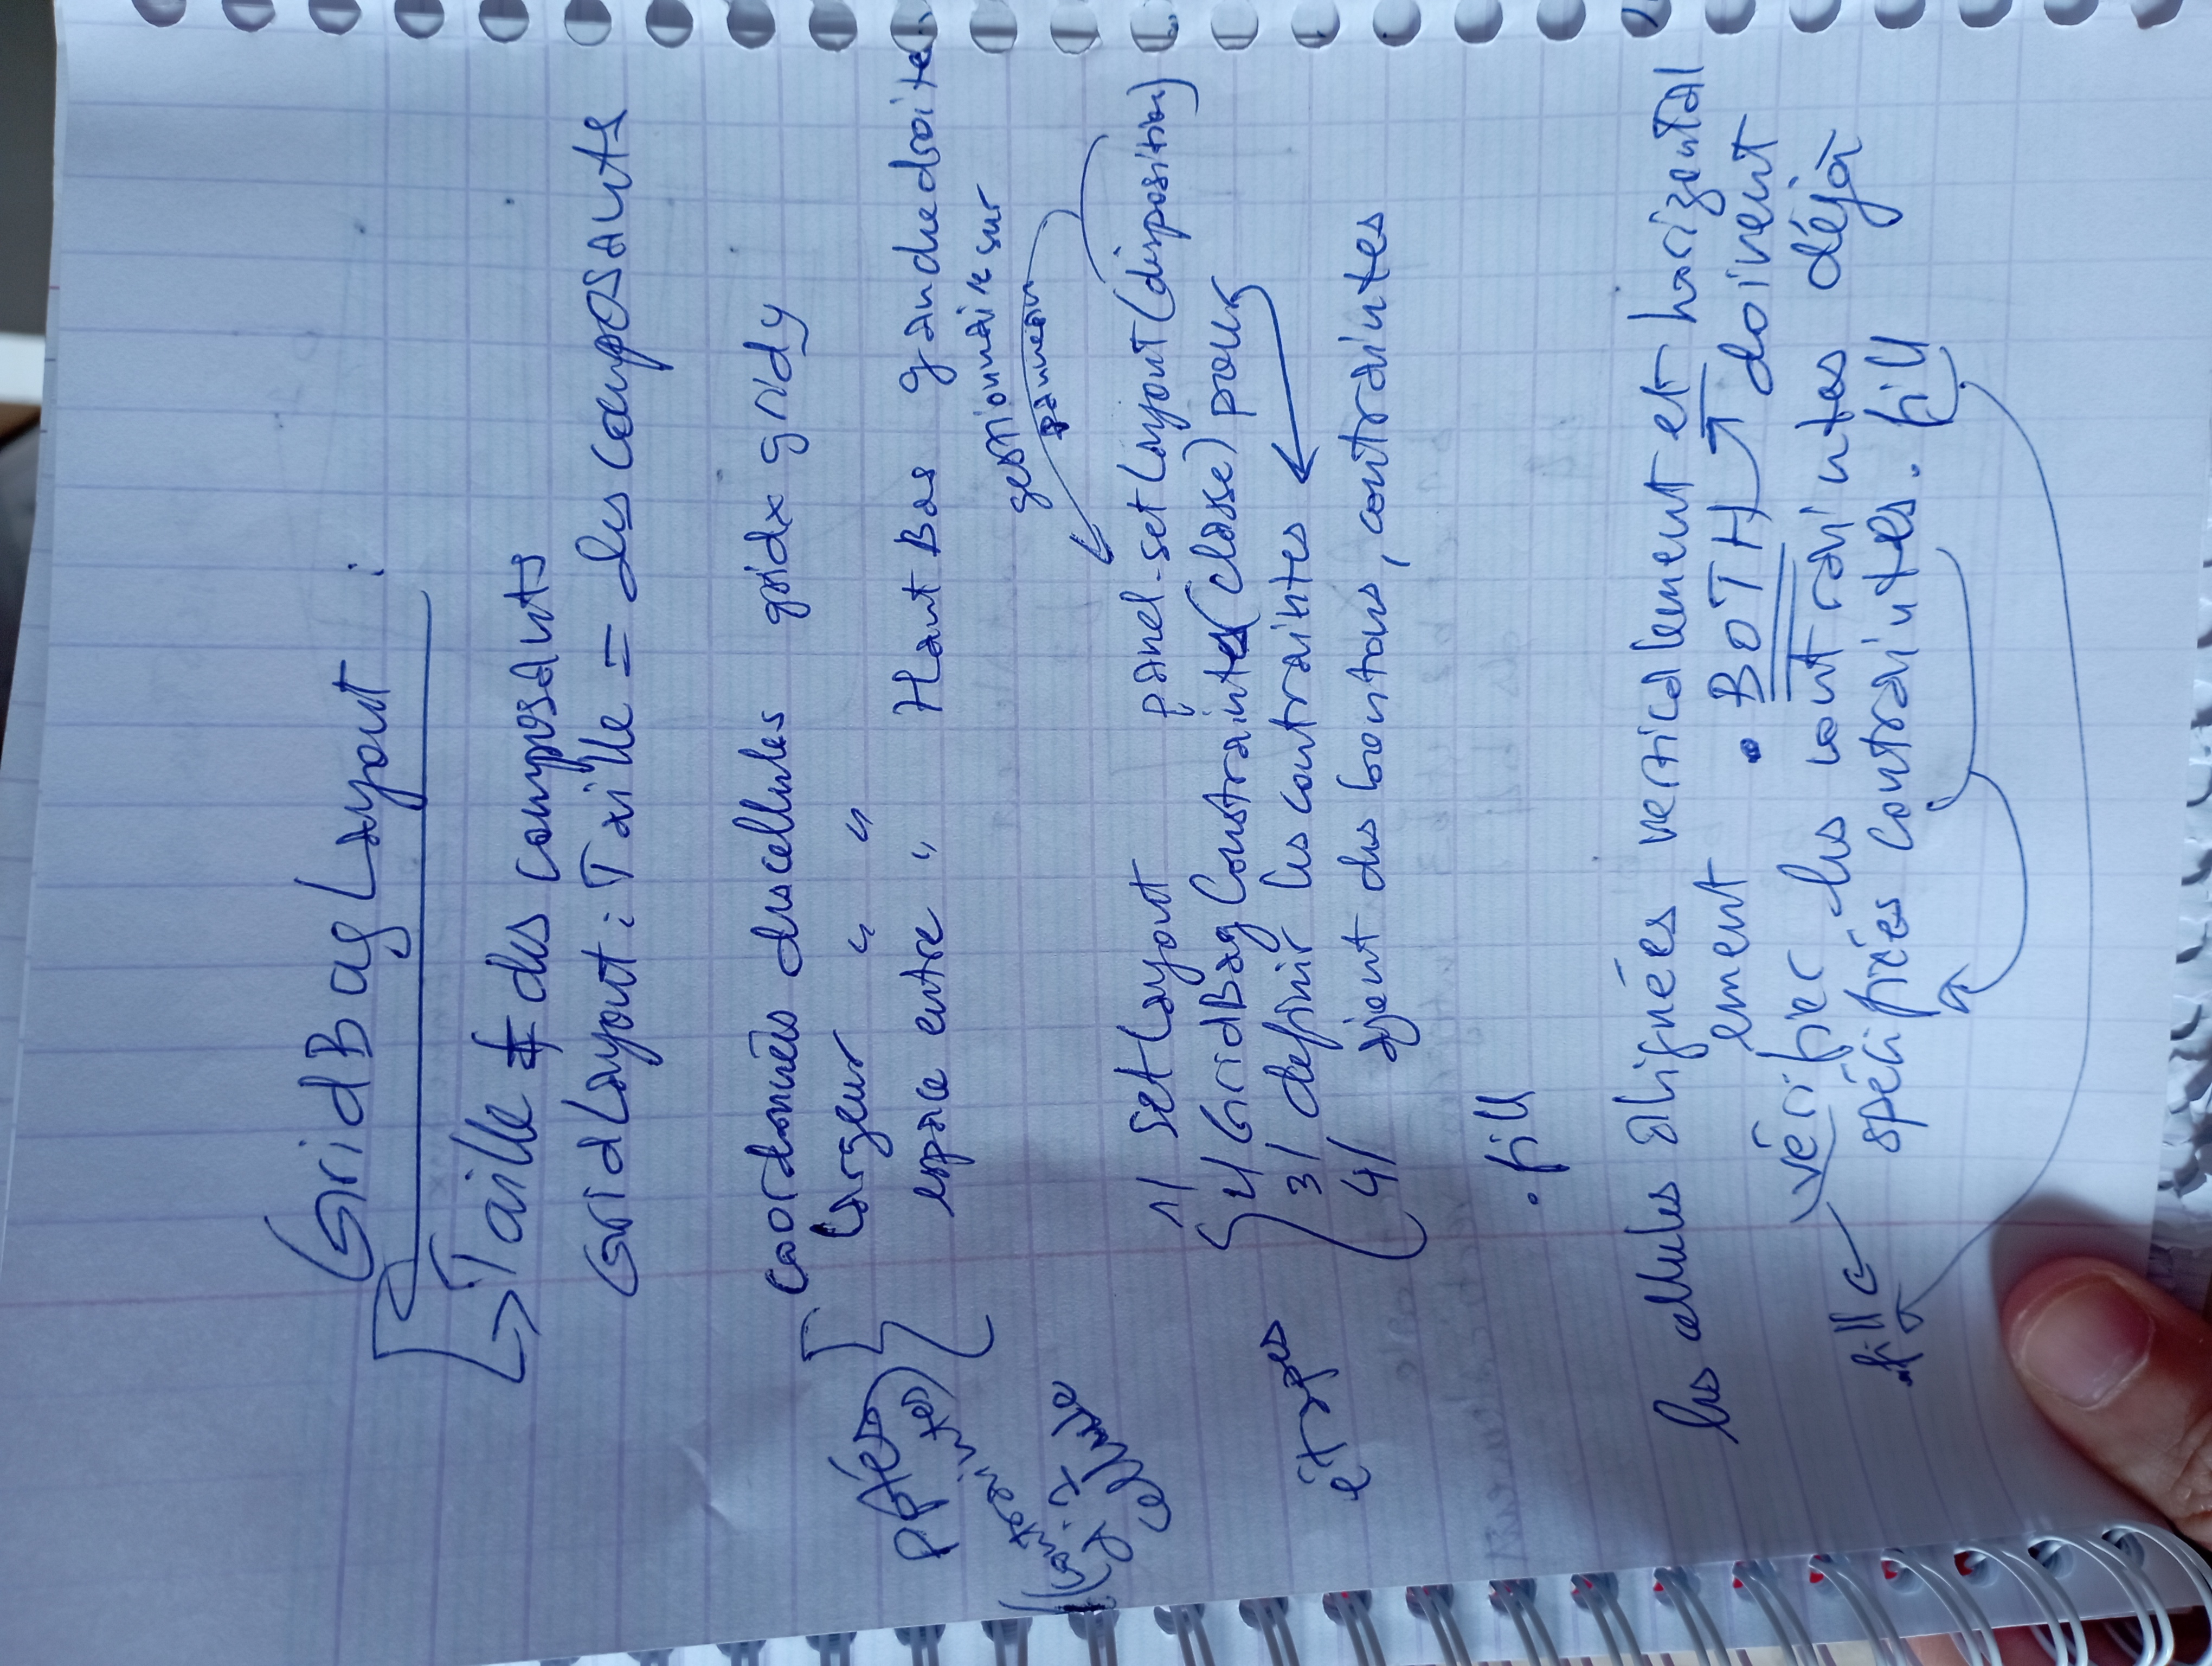 GridBagLayout :
Taille ≠ des composants
GridLayout : Taille = des composants
coordonnées des cellules gridx gridy
largeur " "
espace entre " Haut Bas gauche droite
pptés
(contraintes)
d'1
cellule
gestionnaire sur
panneau
1/ setLayout panel.setLayout(disposition)
2/ GridBagConstraints (classe) pour
étapes
3/ définir les contraintes
4/ ajout des boutons, contraintes
.fill
les cellules alignées verticalement et horizontal
ement . BOTH doivent
vérifier les contraintes déjà
.fill spécifiées contraintes.fill